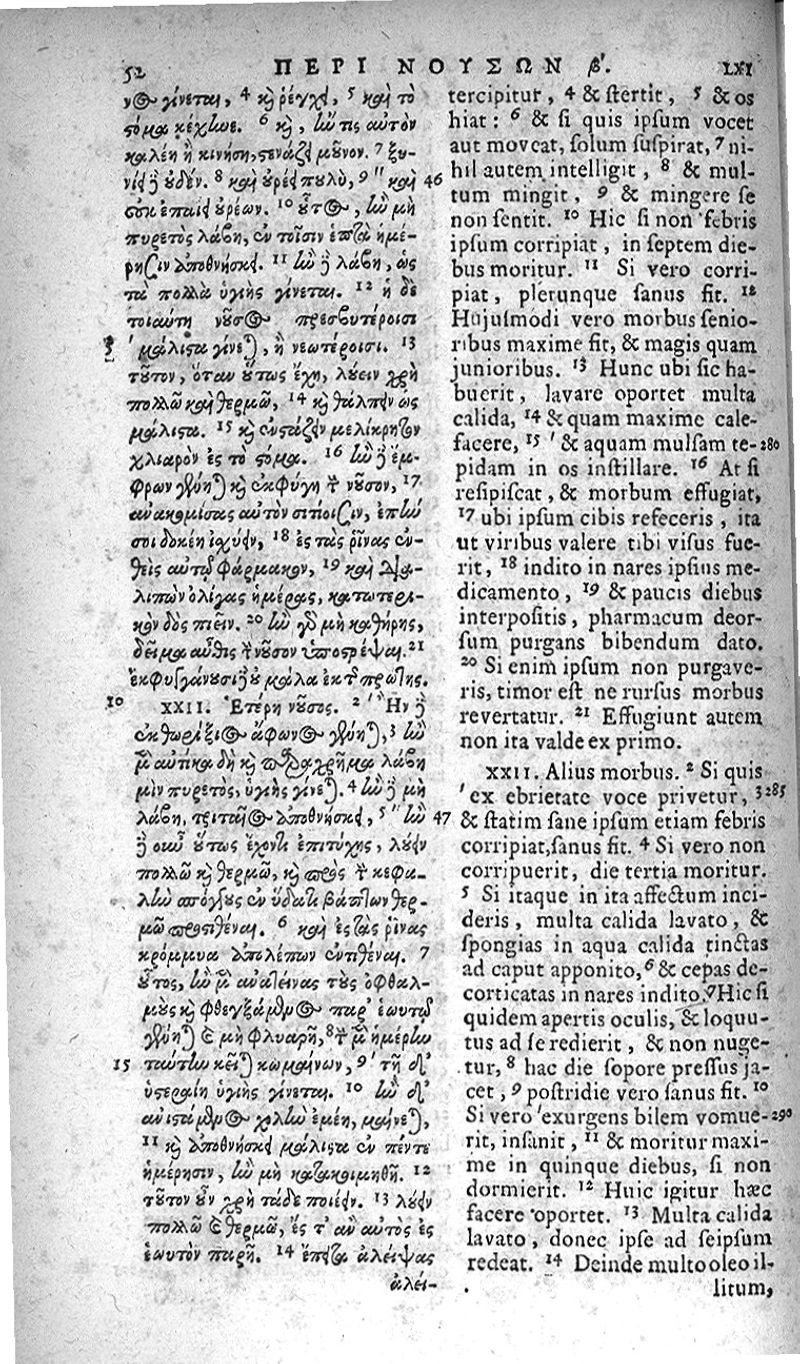 52 ΠΕΡΙ ΝΟΥΣΩΝ β'. LXI
νος γίνεται, 4 καὶ ῥέγχει, 5 καὶ τὸ
στόμα κέχηνε. 6 καὶ, ἢν τις αὐτὸν
καλέῃ ἢ κινήσῃ, στενάζει μοῦνον. 7 ξυ-
νίει δὲ οὐδέν. 8 καὶ οὐρέει πουλὺ, 9 " καὶ 46
οὐκ ἐπαΐει οὐρέων. 10 οὗτος, ἢν μὴ
πυρετὸς λάβῃ, ἐν τοῖσιν ἑπτὰ ἡμέ-
ρῃσιν ἀποθνήσκει. 11 ἢν δὲ λάβῃ, ὡς
τὰ πολλὰ ὑγιὴς γίνεται. 12 ἡ δὲ
τοιαύτη νοῦσος πρεσβυτέροισι
' μάλιστα γίνεται, ἢ νεωτέροισι. 13
τοῦτον, ὅταν οὕτως ἔχῃ, λούειν χρὴ
πολλῷ καὶ θερμῷ, 14 καὶ θάλπειν ὡς
μάλιστα. 15 καὶ ἐνστάζειν μελίκρητον
χλιαρὸν ἐς τὸ στόμα. 16 ἢν δὲ ἔμ-
φρων γένηται καὶ ἐκφύγῃ τὴν νοῦσον, 17
ἀνακομίσας αὐτὸν σιτίοισιν, ἐπὴν
σοι δοκέῃ ἰσχύειν, 18 ἐς τὰς ῥῖνας ἐν-
θεὶς αὐτῷ φάρμακον, 19 καὶ δια-
λιπὼν ὀλίγας ἡμέρας, κατωτερι-
κὸν δὸς πιεῖν. 20 ἢν γὰρ μὴ καθήρῃς,
δεῖμα αὖθις τὴν νοῦσον ὑποστρέψαι. 21
ἐκφυγγάνουσι δὲ οὐ μάλα ἐκ τῆς πρώτης.
10 XXII. Ἑτέρη νοῦσος. 2 ' Ἢν δὲ
ἐκ θωρήξιος ἄφωνος γένηται, 3 ἢν
μὲν αὐτίκα δὴ καὶ παραχρῆμα λάβῃ
μὶν πυρετὸς, ὑγιὴς γίνεται. 4 ἢν δὲ μὴ
λάβῃ, τριταῖος ἀποθνήσκει, 5 " ἢν 47
δὲ οὖν οὕτως ἔχοντι ἐπιτύχῃς, λούειν
πολλῷ καὶ θερμῷ, καὶ πρὸς τὴν κεφα-
λὴν σπόγγους ἐν ὕδατι βάπτων θερ-
μῷ προστιθέναι. 6 καὶ ἐς τὰς ῥῖνας
κρόμμυα ἀπολέπων ἐντιθέναι. 7
οὗτος, ἢν μὲν ἀνατείνας τοὺς ὀφθαλ-
μοὺς καὶ φθεγξάμενος παρ' ἑωυτῷ
γένηται καὶ μὴ φλυαρῇ, 8 τὴν μὲν ἡμέρην
15 ταύτην κεῖται κωμαίνων, 9 ' τῇ δ'
ὑστεραίῃ ὑγιὴς γίνεται. 10 ἢν δ'
ἀνιστάμενος χολὴν ἐμέῃ, μαίνεται,
11 καὶ ἀποθνήσκει μάλιστα ἐν πέντε
ἡμέρῃσιν, ἢν μὴ κατακοιμηθῇ. 12
τοῦτον οὖν χρὴ τάδε ποιέειν. 13 λούειν
πολλῷ καὶ θερμῷ, ἔς τ' ἂν αὐτὸς ἐς
ἑωυτὸν παρῇ. 14 ἔπειτα ἀλείψας
ἀλεί-
tercipitur, 4 & ſtertit, 5 & os
hiat: 6 & si quis ipſum vocet
aut moveat, ſolum ſuſpirat, 7 ni-
hil autem intelligit, 8 & mul-
tum mingit, 9 & mingere ſe
non ſentit. 10 Hic ſi non febris
ipſum corripiat, in ſeptem die-
bus moritur. 11 Si vero corri-
piat, plerunque ſanus fit. 12
Hujuſmodi vero morbus ſenio-
ribus maxime fit, & magis quam
junioribus. 13 Hunc ubi ſic ha-
buerit, lavare oportet multa
calida, 14 & quam maxime cale-
facere, 15 ' & aquam mulſam te- 280
pidam in os inſtillare. 16 At ſi
reſipiſcat, & morbum effugiat,
17 ubi ipſum cibis refeceris, ita
ut viribus valere tibi viſus fue-
rit, 18 indito in nares ipſius me-
dicamento, 19 & paucis diebus
interpoſitis, pharmacum deor-
ſum purgans bibendum dato.
20 Si enim ipſum non purgave-
ris, timor eſt ne rurſus morbus
revertatur. 21 Effugiunt autem
non ita valde ex primo.
XXII. Alius morbus. 2 Si quis
' ex ebrietate voce privetur, 3 285
& ſtatim ſane ipſum etiam febris
corripiat, ſanus fit. 4 Si vero non
corripuerit, die tertia moritur.
5 Si itaque in ita affectum inci-
deris, multa calida lavato, &
ſpongias in aqua calida tinctas
ad caput apponito, 6 & cepas de-
corticatas in nares indito. 7 Hic ſi
quidem apertis oculis, & loquu-
tus ad ſe redierit, & non nuge-
tur, 8 hac die ſopore preſſus ja-
cet, 9 poſtridie vero ſanus fit. 10
Si vero ' exurgens bilem vomue- 290
rit, inſanit, 11 & moritur maxi-
me in quinque diebus, ſi non
dormierit. 12 Huic igitur hæc
facere oportet. 13 Multa calida
lavato, donec ipſe ad ſeipſum
redeat. 14 Deinde multo oleo il-
litum,